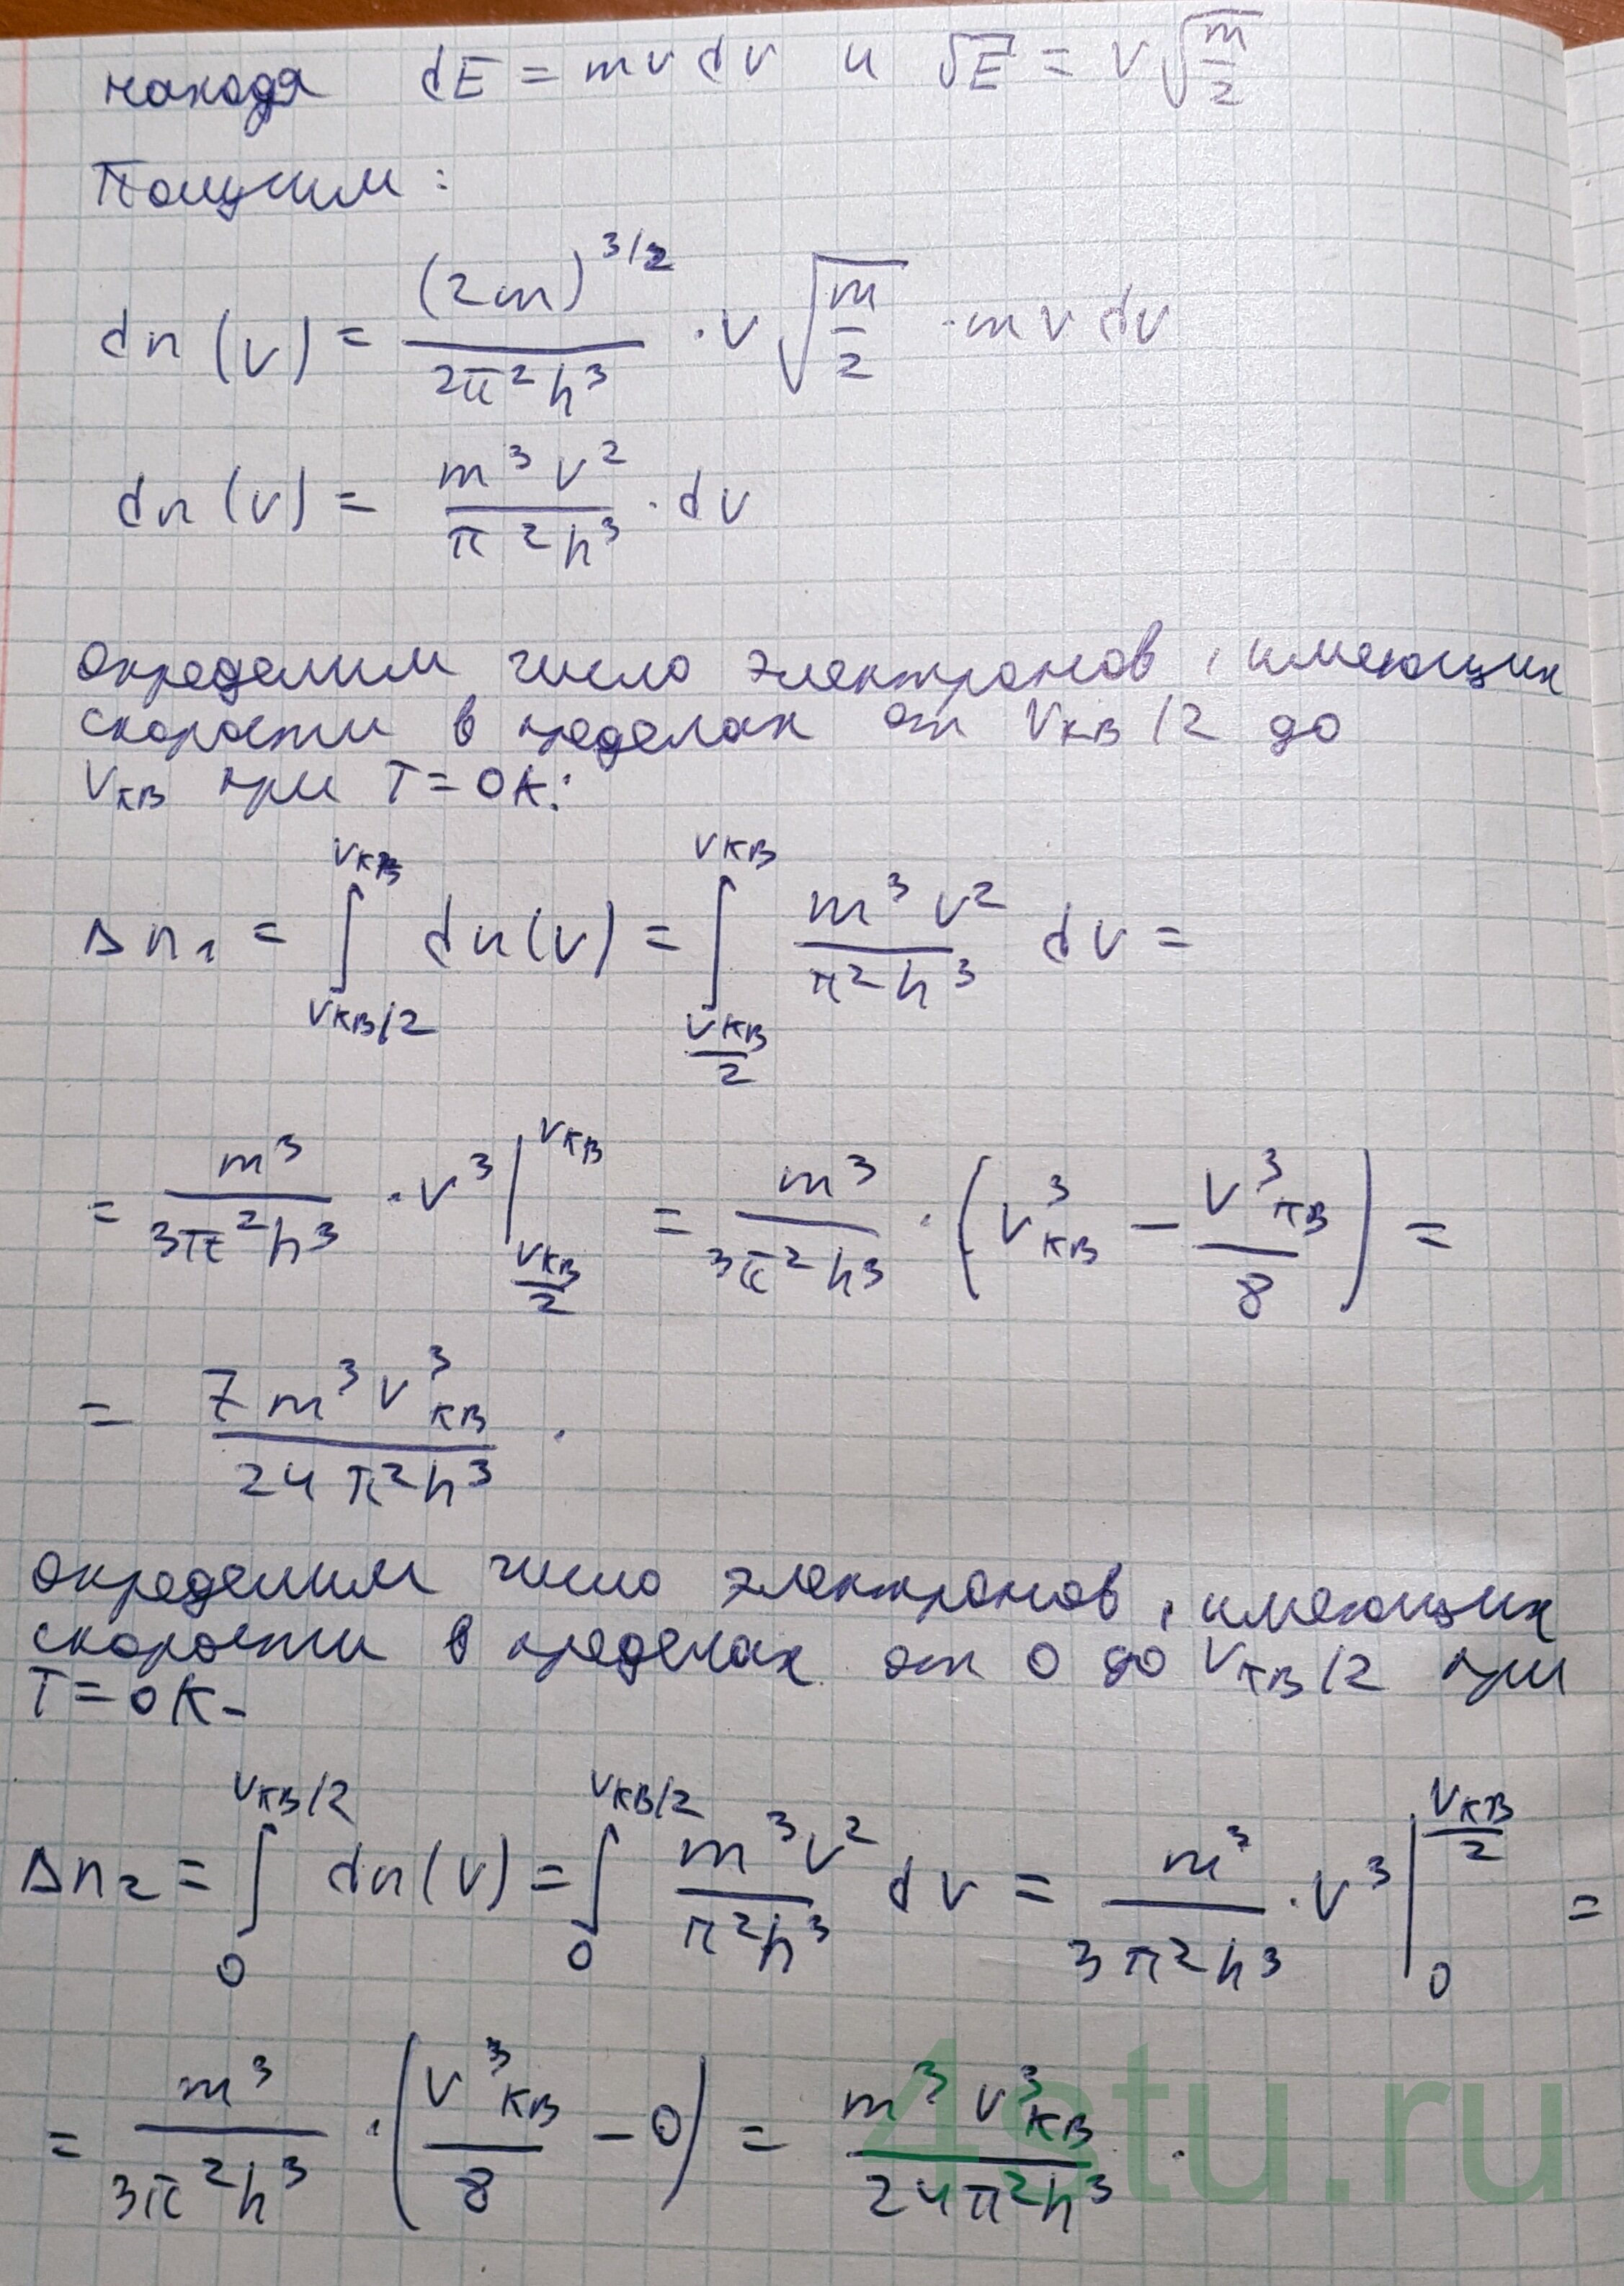 находя dE = mvdv и √E = v√(m/2)
Получим:
dn(v) = (2m)^(3/2) / (2π²ħ³) · v√(m/2) · mvdv
dn(v) = m³v² / (π²ħ³) · dv
определим число электронов, имеющих
скорости в пределах от Vкв/2 до
Vкв при T=0К:
Δn₁ = ∫_{Vкв/2}^{Vкв} dn(v) = ∫_{Vкв/2}^{Vкв} m³v² / (π²ħ³) dv =
= m³ / (3π²ħ³) · v³ |_{Vкв/2}^{Vкв} = m³ / (3π²ħ³) · (v³кв − v³кв / 8) =
= 7m³v³кв / (24π²ħ³) .
определим число электронов, имеющих
скорости в пределах от 0 до Vкв/2 при
T=0К.
Δn₂ = ∫_0^{Vкв/2} dn(v) = ∫_0^{Vкв/2} m³v² / (π²ħ³) dv = m³ / (3π²ħ³) · v³ |_0^{Vкв/2} =
= m³ / (3π²ħ³) · (v³кв / 8 − 0) = m³v³кв / (24π²ħ³) .
4stu.ru